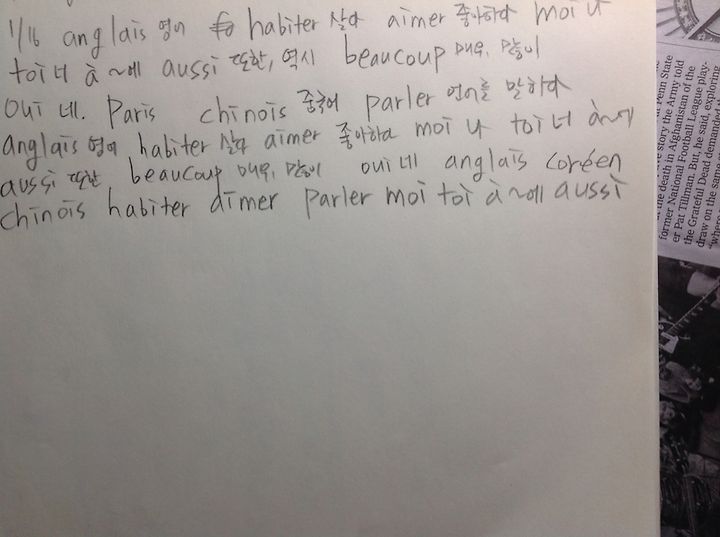 1/16 anglais 영어 habiter 살다 aimer 좋아하다 moi 나
toi 너 à ~에 aussi 또한, 역시 beaucoup 매우, 많이
oui 네. Paris chinois 중국어 parler 언어를 말하다
anglais 영어 habiter 살다 aimer 좋아하다 moi 나 toi 너 à ~에
aussi 또한 beaucoup 매우, 많이 oui 네 anglais coréen
chinois habiter aimer parler moi toi à ~에 aussi
Penn State
story the Army told
the death in Afghanistan of the
former National Football League play-
er Pat Tillman. But, he said, exploring
the Grateful Dead demanded
draw on the same
"where